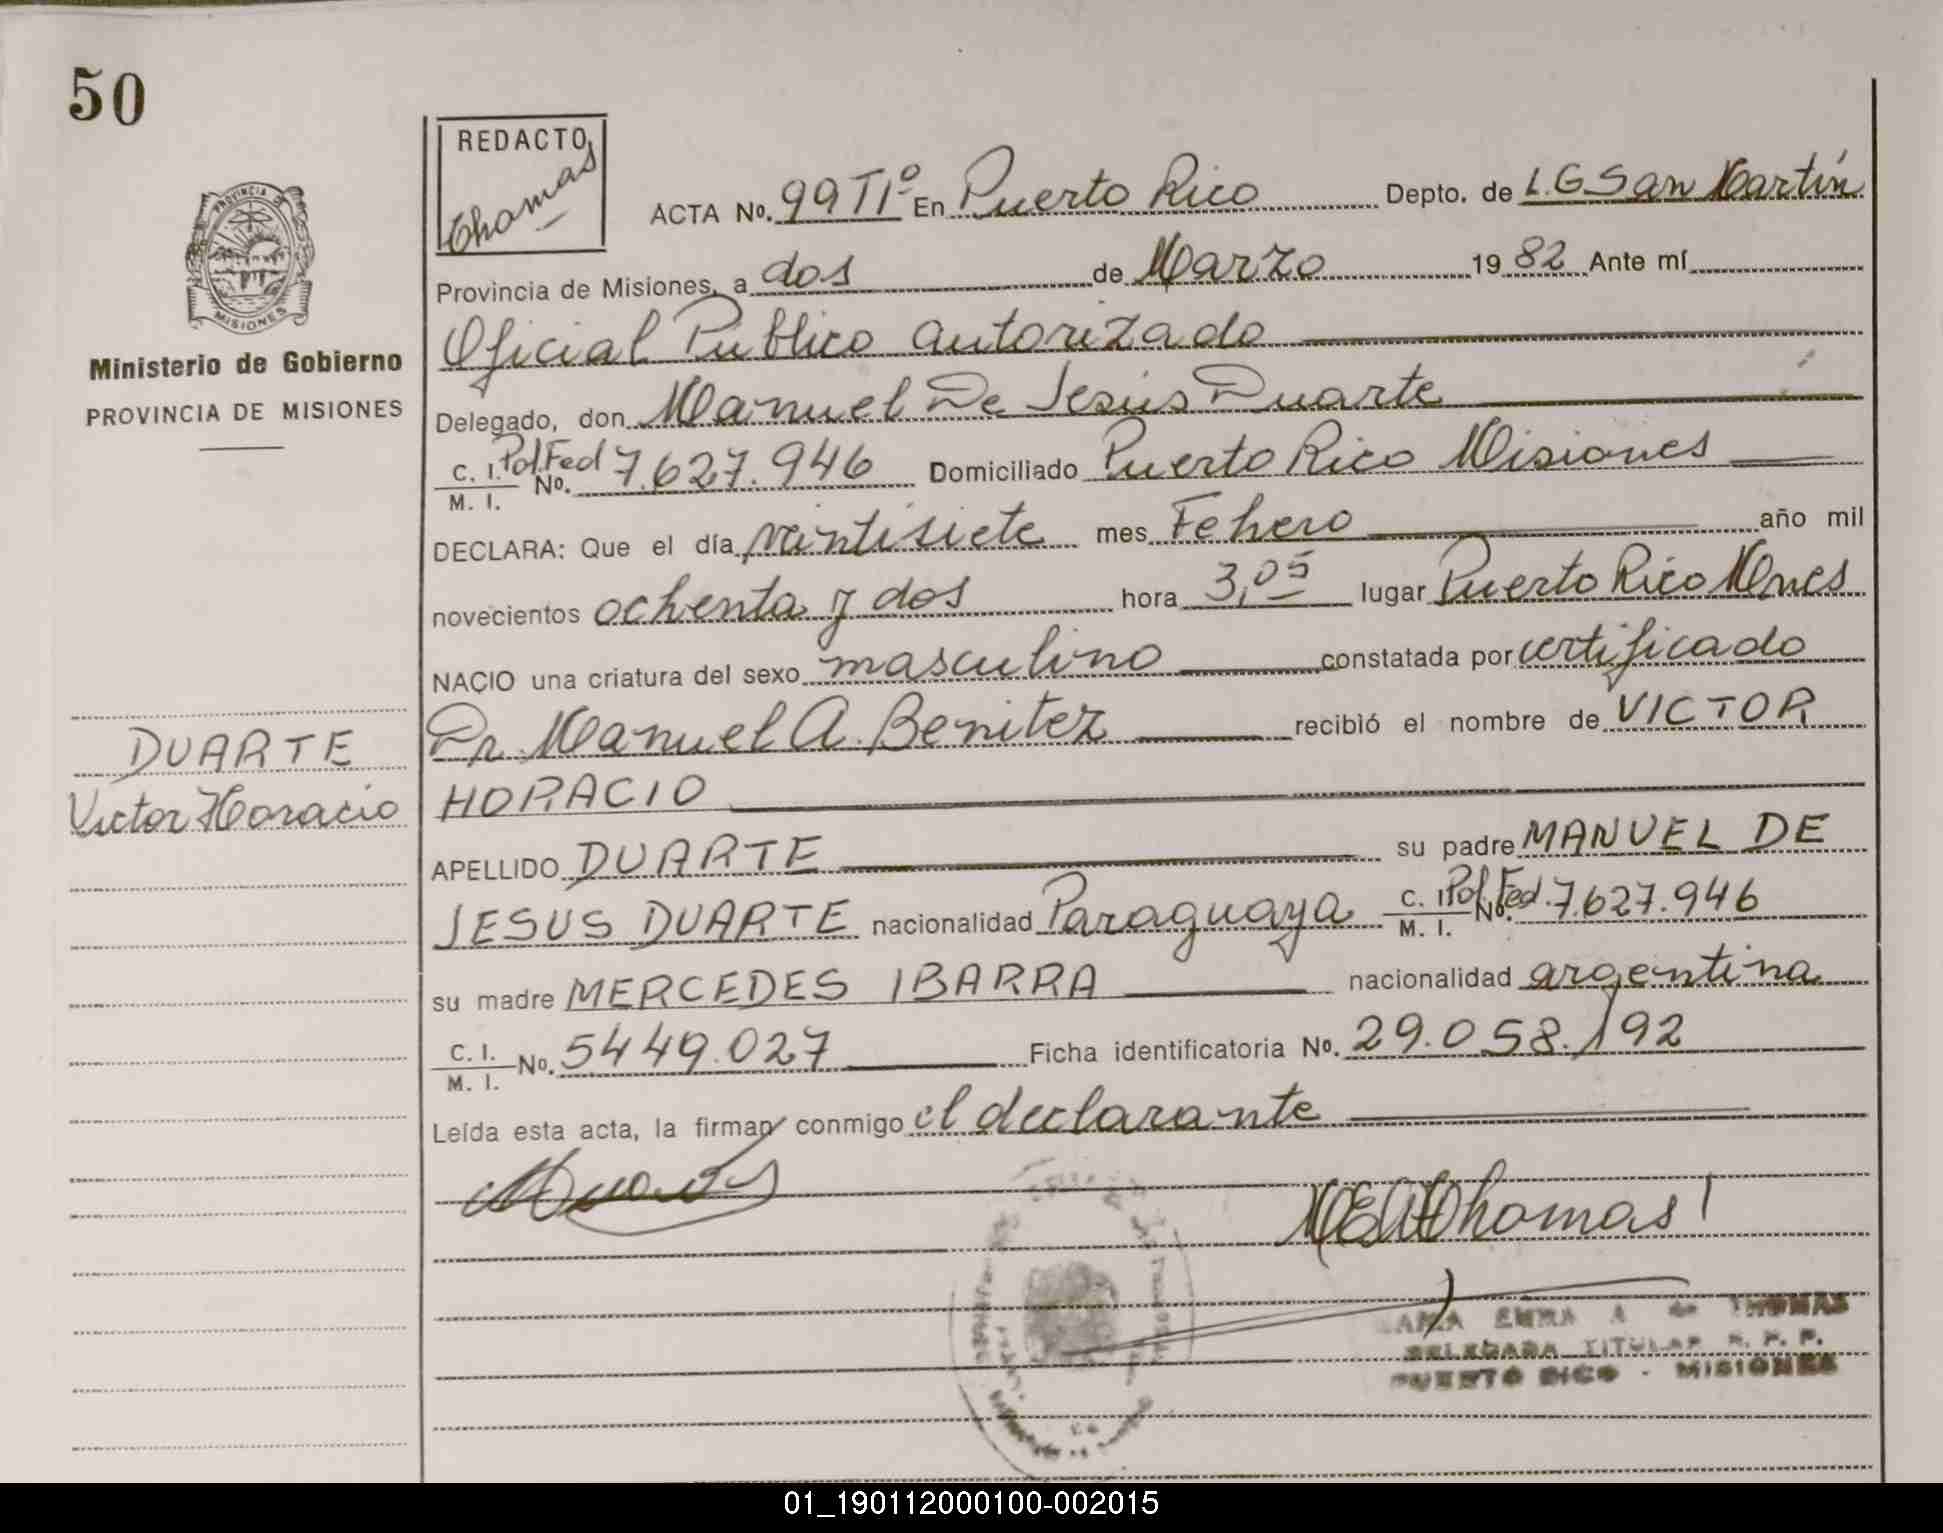 50
REDACTO
Thomas
PROVINCIA DE
MISIONES
Ministerio de Gobierno
PROVINCIA DE MISIONES
ACTA No. 99 TIº En Puerto Rico Depto. de L.G San Martín
Provincia de Misiones, a dos de Marzo 19 82 Ante mí
Oficial Publico autorizado
Delegado, don Manuel De Jesús Duarte
C. I. Pol.Fed
M. I. No. 7.627.946 Domiciliado Puerto Rico Misiones
DECLARA: Que el día veintisiete mes Febrero año mil
novecientos ochenta y dos hora 3,05 lugar Puerto Rico Mnes
NACIO una criatura del sexo masculino constatada por certificado
Dr. Manuel A. Benitez recibió el nombre de VICTOR
HORACIO
DUARTE
Victor Horacio
APELLIDO DUARTE su padre MANUEL DE
JESUS DUARTE nacionalidad Paraguaya C. I. Pol. Fed. M. I. No. 7.627.946
su madre MERCEDES IBARRA nacionalidad argentina
C. I.
M. I. No. 5449.027 Ficha identificatoria No. 29.058.192
Leída esta acta, la firman conmigo el declarante
Thomas
EMMA A de THOMAS
DELEGADA TITULAR R. P.
PUERTO RICO - MISIONES
01_190112000100-002015